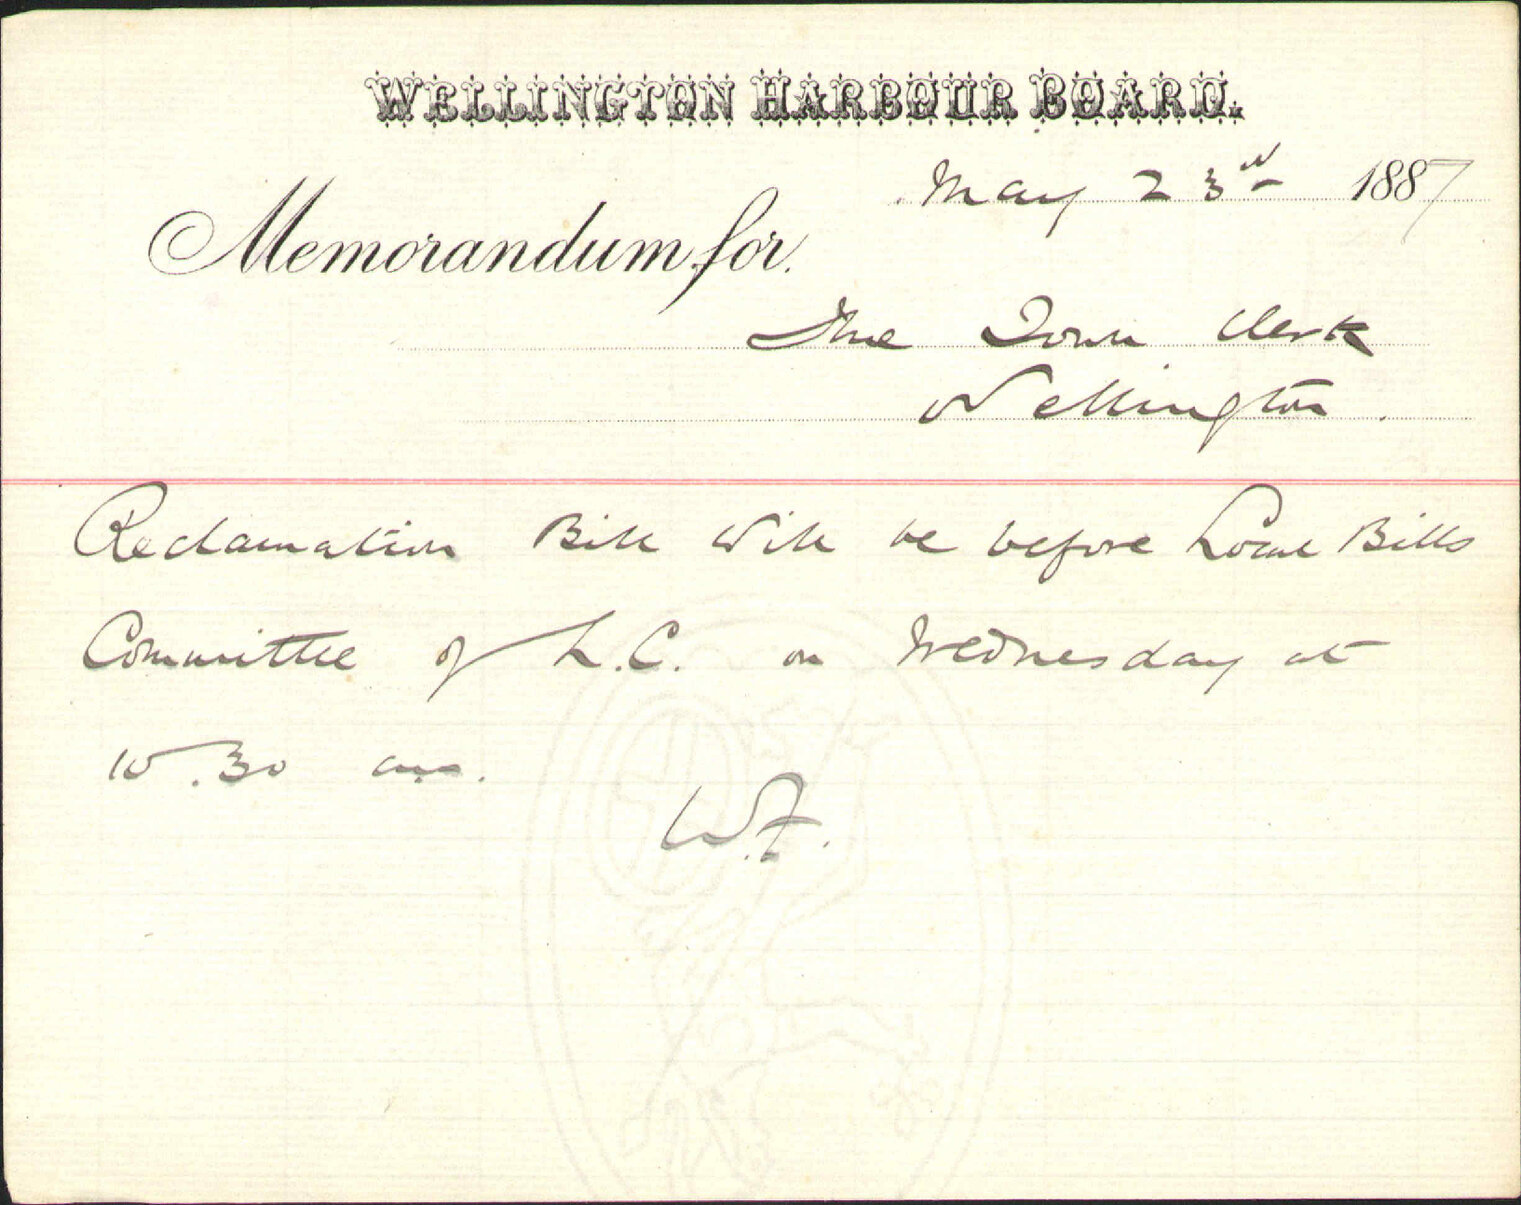 WELLINGTON HARBOUR BOARD.
May 23rd 1887
Memorandum for
The Town Clerk
Wellington.
Reclamation Bill will be before Local Bills
Committee of L.C. on Wednesday at
10.30 am.
W.F.